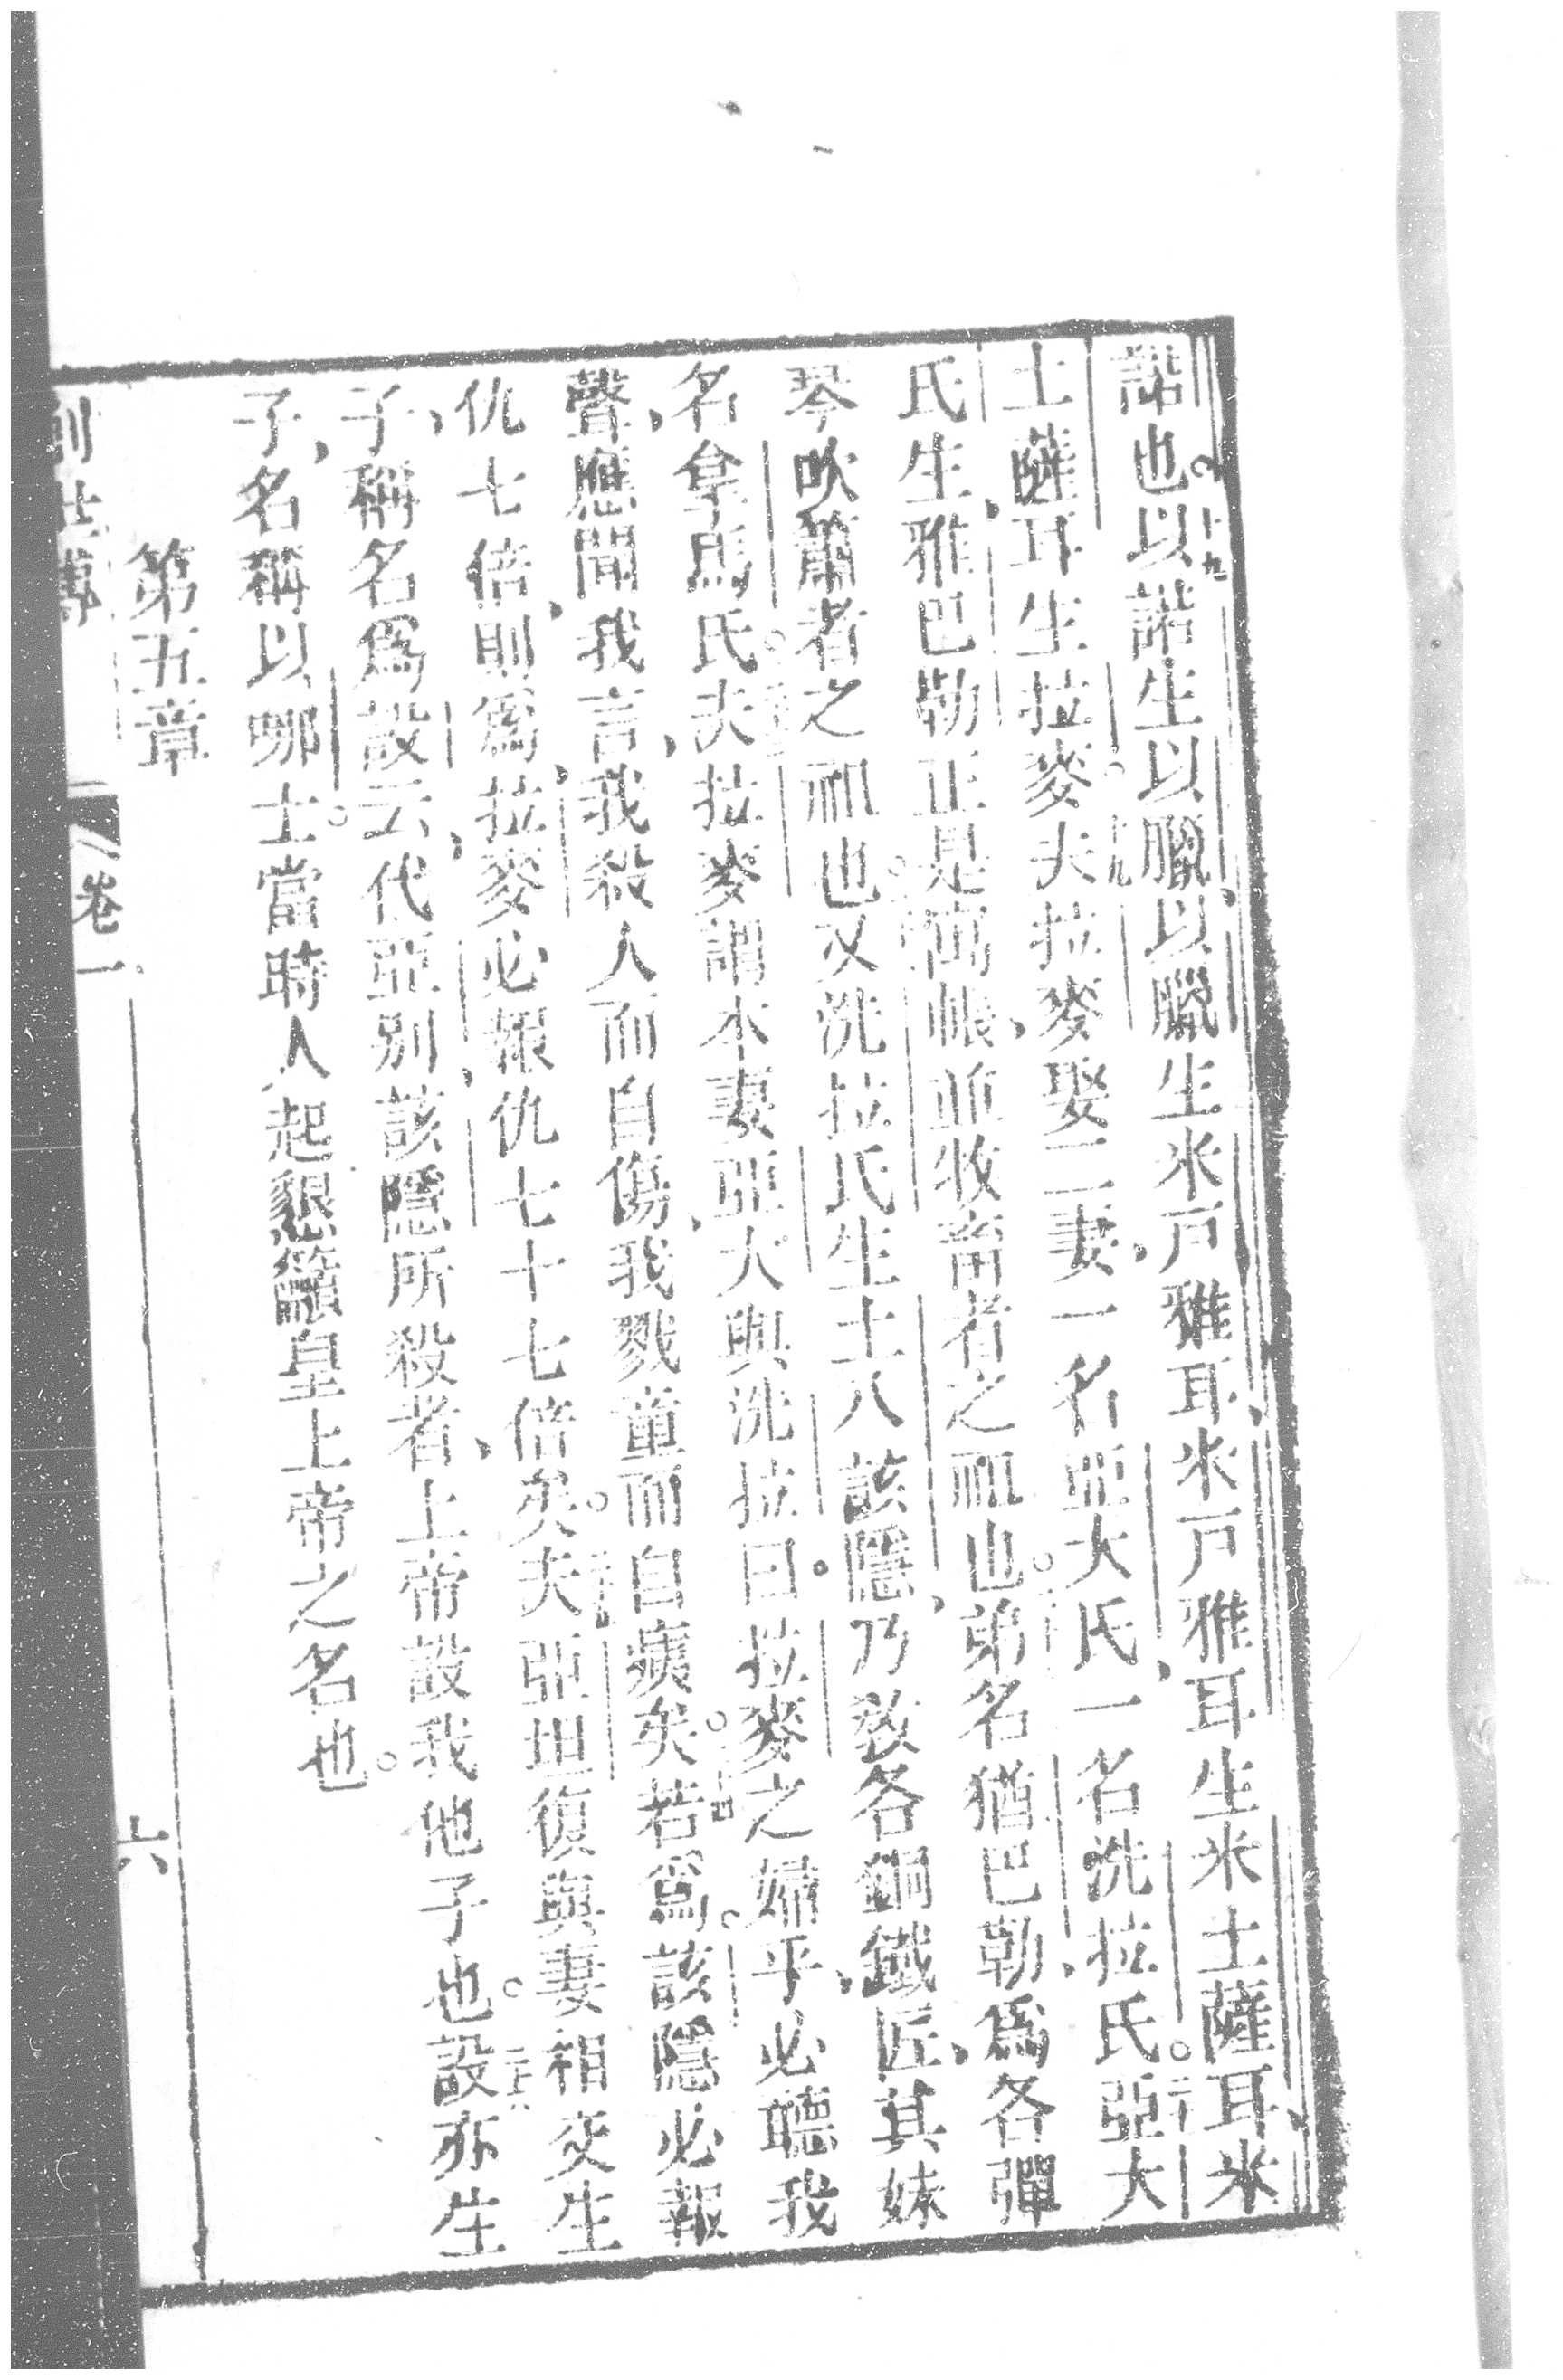 諾也以諾生以臘以臘生米戶雅耳米戶雅耳生米土薩耳米
土薩耳生拉麥夫拉麥娶二妻一名亞大氏一名洗拉氏亞大
氏生雅巴勒正是居帳並牧畜者之祖也弟名猶巴勒爲各彈
琴吹簫者之祖也又洗拉氏生土八該隱乃教各銅鐵匠其妹
名拿馬氏夫拉麥謂本妻亞大與洗拉曰拉麥之婦乎必聽我
聲應聞我言我殺人而自傷我戮童而自痍矣若爲該隱必報
仇七倍則爲拉麥必報仇七十七倍矣夫亞坦復與妻相交生
子稱名爲設云代亞別該隱所殺者上帝設我他子也設亦生
子名稱以哪士當時人起懇籲皇上帝之名也
第五章
創世傳 卷一 六